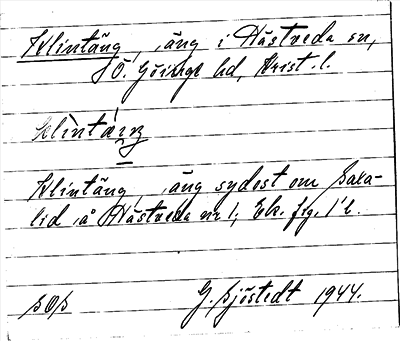 Klintäng, äng i Hästveda sn,
Ö. Göinge hd, Krist. l.
Klintäng, äng sydost om Saxa-
lid å Hästveda nr 1; Ek. fig.
SOS G. Sjöstedt 1944.